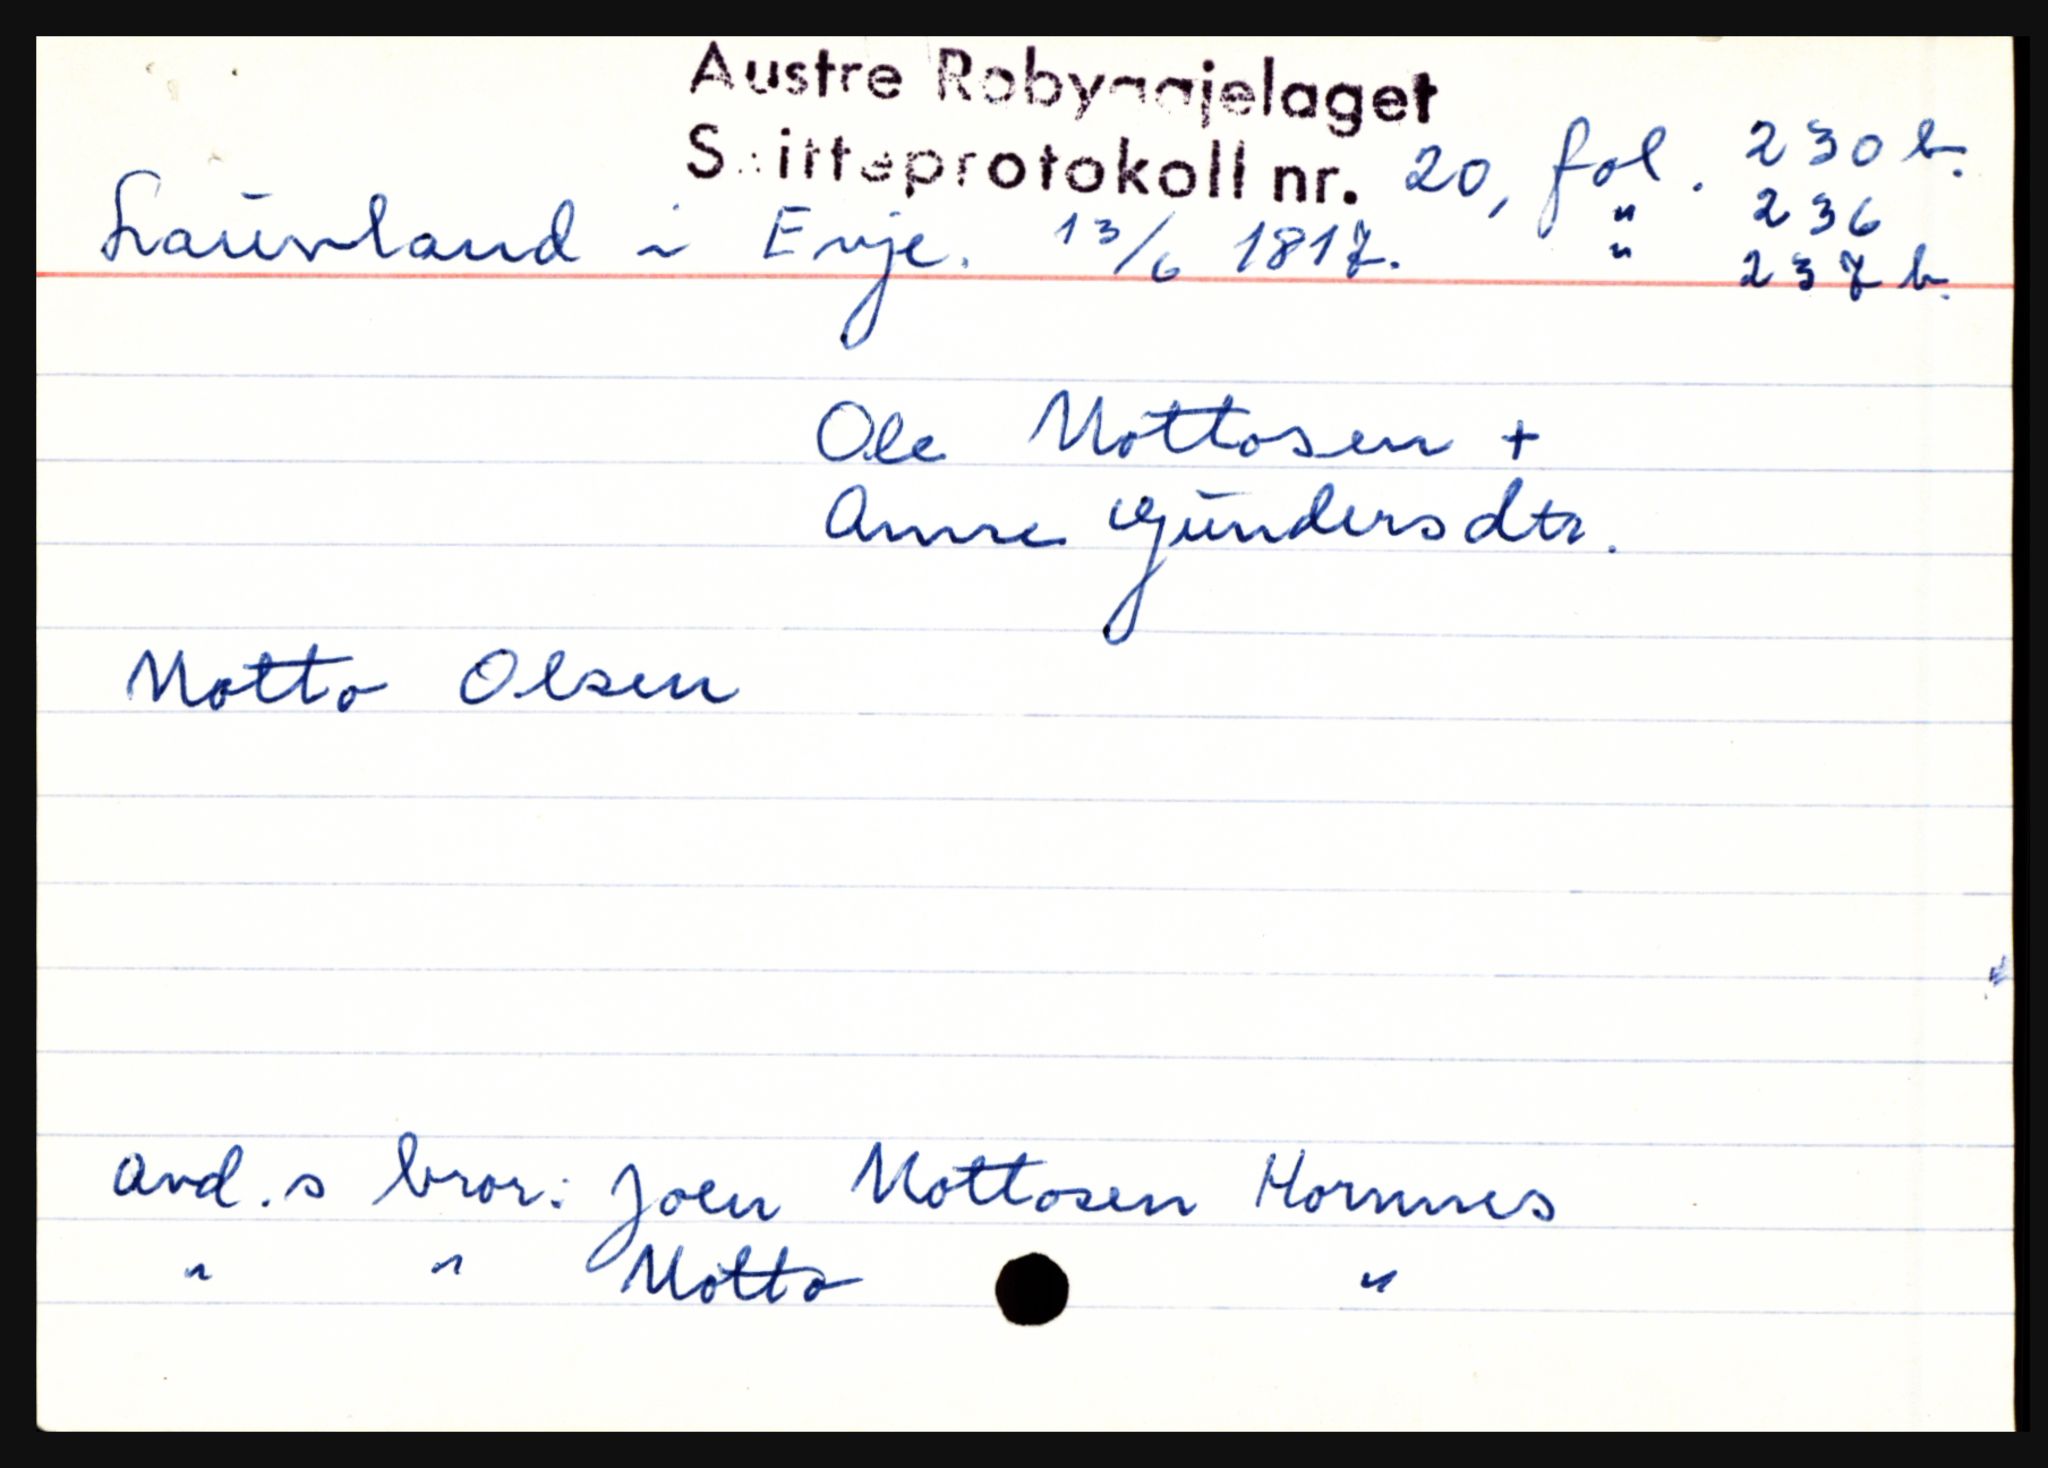 Austre Robyggjelaget
Skifteprotokoll nr. 20, fol. 230 b.
" 236
Lauvland i Evje. 13/6 1817. " 237 b.
Ole Mottosen +
Anne Gundersdtr.
Motto Olsen
avd.s bror: Joen Mottosen Hornnes
" " Motto "